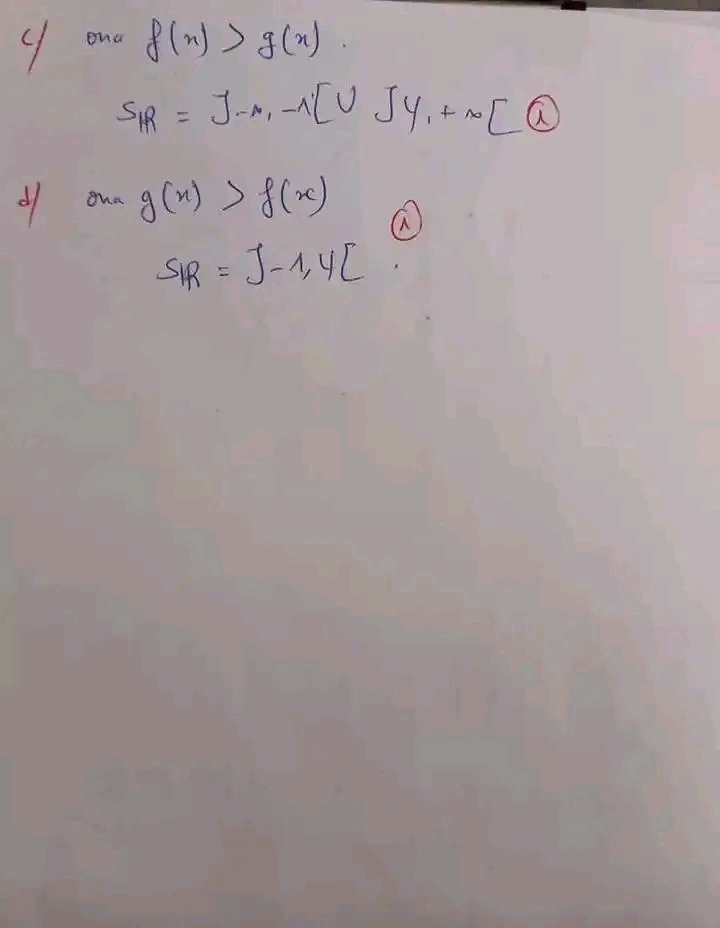 c/ ona f(x) > g(x).
S_IR = ]-∞, -1[ ∪ ]4, +∞[ ①
d/ ona g(x) > f(x)
①
S_IR = ]-1, 4[ .